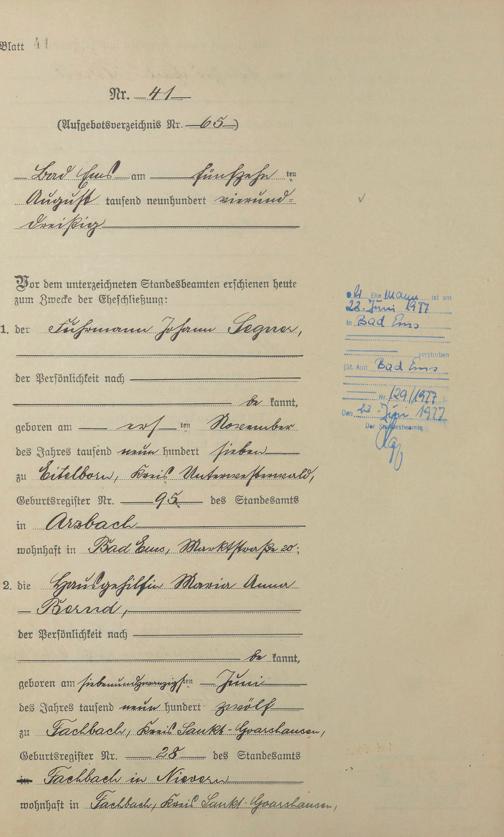 Blatt 41
Nr. 41
(Aufgebotsverzeichnis Nr. 65)
Bad Ems am fünfzehnten
August tausend neunhundert vierund-
dreißig
Vor dem unterzeichneten Standesbeamten erschienen heute
zum Zwecke der Eheschließung:
1. der Fuhrmann Johann Segner,
der Persönlichkeit nach
be kannt,
geboren am ersten November
des Jahres tausend neun hundert sieben
zu Eitelborn, Kreis Unterwesterwald,
Geburtsregister Nr. 95 des Standesamts
in Arzbach
wohnhaft in Bad Ems, Marktstraße 20;
2. die Hausgehilfin Maria Anna
Bernd,
der Persönlichkeit nach
be kannt,
geboren am siebenundzwanzigsten Juni
des Jahres tausend neun hundert zwölf
zu Fachbach, Kreis Sankt-Goarshausen,
Geburtsregister Nr. 28 des Standesamts
in Fachbach in Nievern
wohnhaft in Fachbach, Kreis Sankt-Goarshausen,
Mann ist am
22. Juni 1977
in Bad Ems
verstorben
St. Amt Bad Ems
Nr. 129/1977
Den 23. Juni 1977
Der Standesbeamte